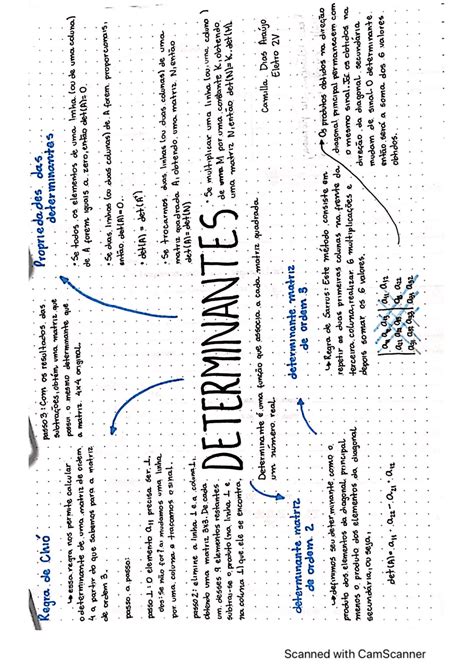 Regra de Chió
↳ essa regra nos permite calcular
o determinante de uma matriz de ordem
4 a partir do que sabemos para a matriz
de ordem 3.
passo a passo:
passo 1: O elemento a11 precisa ser 1,
dos: se não for(a) mudamos uma linha
por uma coluna e trocamos o sinal.
passo 2: elimine a linha 1 e a coluna 1,
obtendo uma matriz 3x3. De cada
um desses 9 elementos restantes
subtrai-se o produto (na linha 1 e
na coluna 1) que ele se encontra,
passo 3: Com os resultados das
subtrações, obtém uma matriz que
possui o mesmo determinante que
a matriz 4x4 original.
Propriedades das
determinantes
• Se todos os elementos de uma linha (ou de uma coluna)
de A forem iguais a zero, então det(A)=0.
• Se duas linhas (ou duas colunas) de A forem proporcionais,
então det(A)=0.
• det(A) = det(Aᵗ)
• Se trocarmos duas linhas (ou duas colunas) de uma
matriz quadrada A, obtendo uma matriz N, então
det(N)= det(A)
• Se multiplicar uma linha (ou uma coluna)
de uma M por uma constante K, obtendo
uma matriz N, então det(N)=K.det(M)
DETERMINANTES
Camilla Dias Araújo
Eletro 2V
Determinante é uma função que associa a cada matriz quadrada
um número real.
determinante matriz
de ordem 2
↳ definimos seu determinante como o
produto dos elementos da diagonal principal
menos o produto dos elementos da diagonal
secundária, ou seja;
det(A)= a11 · a22 - a21 · a12
determinante matriz
de ordem 3
↳ Regra de Sarrus: Este método consiste em
repetir as duas primeiras colunas na frente da
terceira coluna, realizar 6 multiplicações e
depois somar os 6 valores.
a11 a12 a13 a11 a12
a21 a22 a23 a21 a22
a31 a32 a33 a31 a32
↳ Os produtos obtidos na direção
da diagonal principal permanecem com
o mesmo sinal. Já os obtidos na
direção da diagonal secundária
mudam de sinal. O determinante
então será a soma dos 6 valores
obtidos.
Scanned with CamScanner